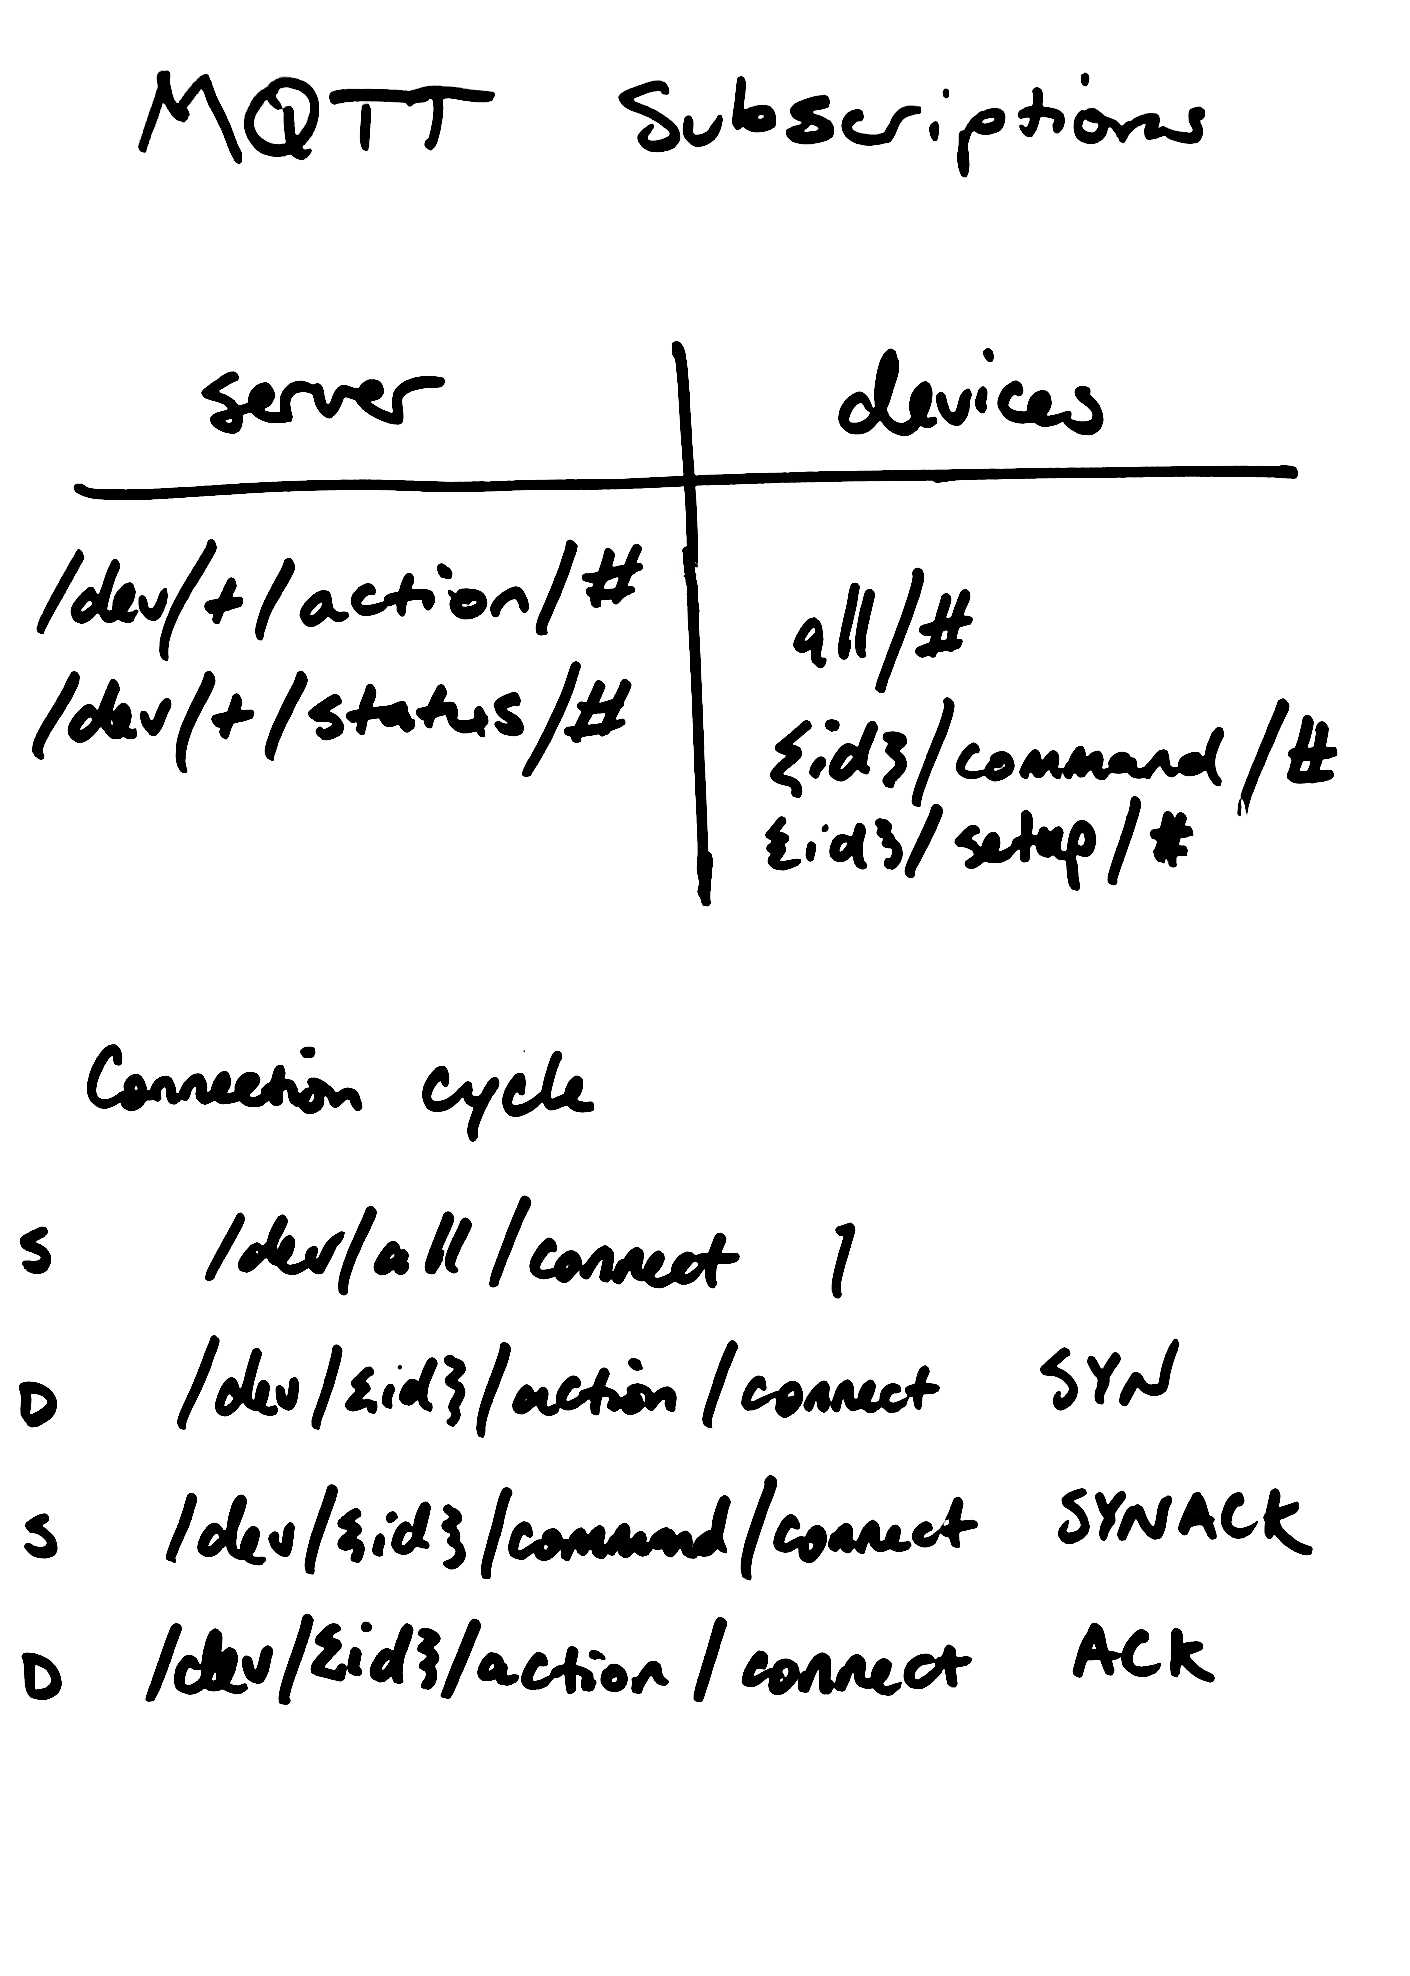 MQTT Subscriptions
server devices
/dev/+/action/# all/#
/dev/+/status/# {id}/command/#
{id}/setup/#
Connection cycle
S /dev/all/connect 1
D /dev/{id}/action/connect SYN
S /dev/{id}/command/connect SYNACK
D /dev/{id}/action/connect ACK